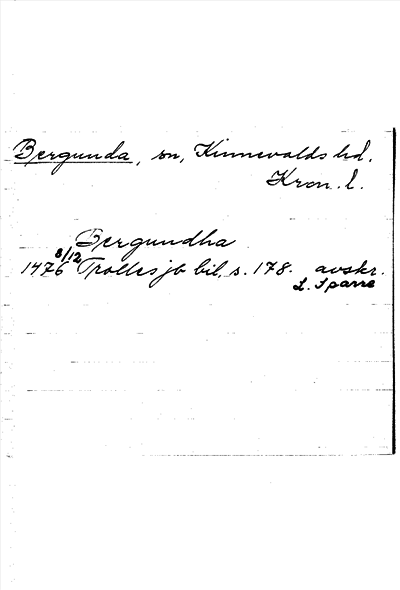 Bergunda, sn, Kinnevalds hd.
Kron. l.
Bergundha
1476 8/12 Trolles jb bil, s. 178. avskr.
L. Sparre